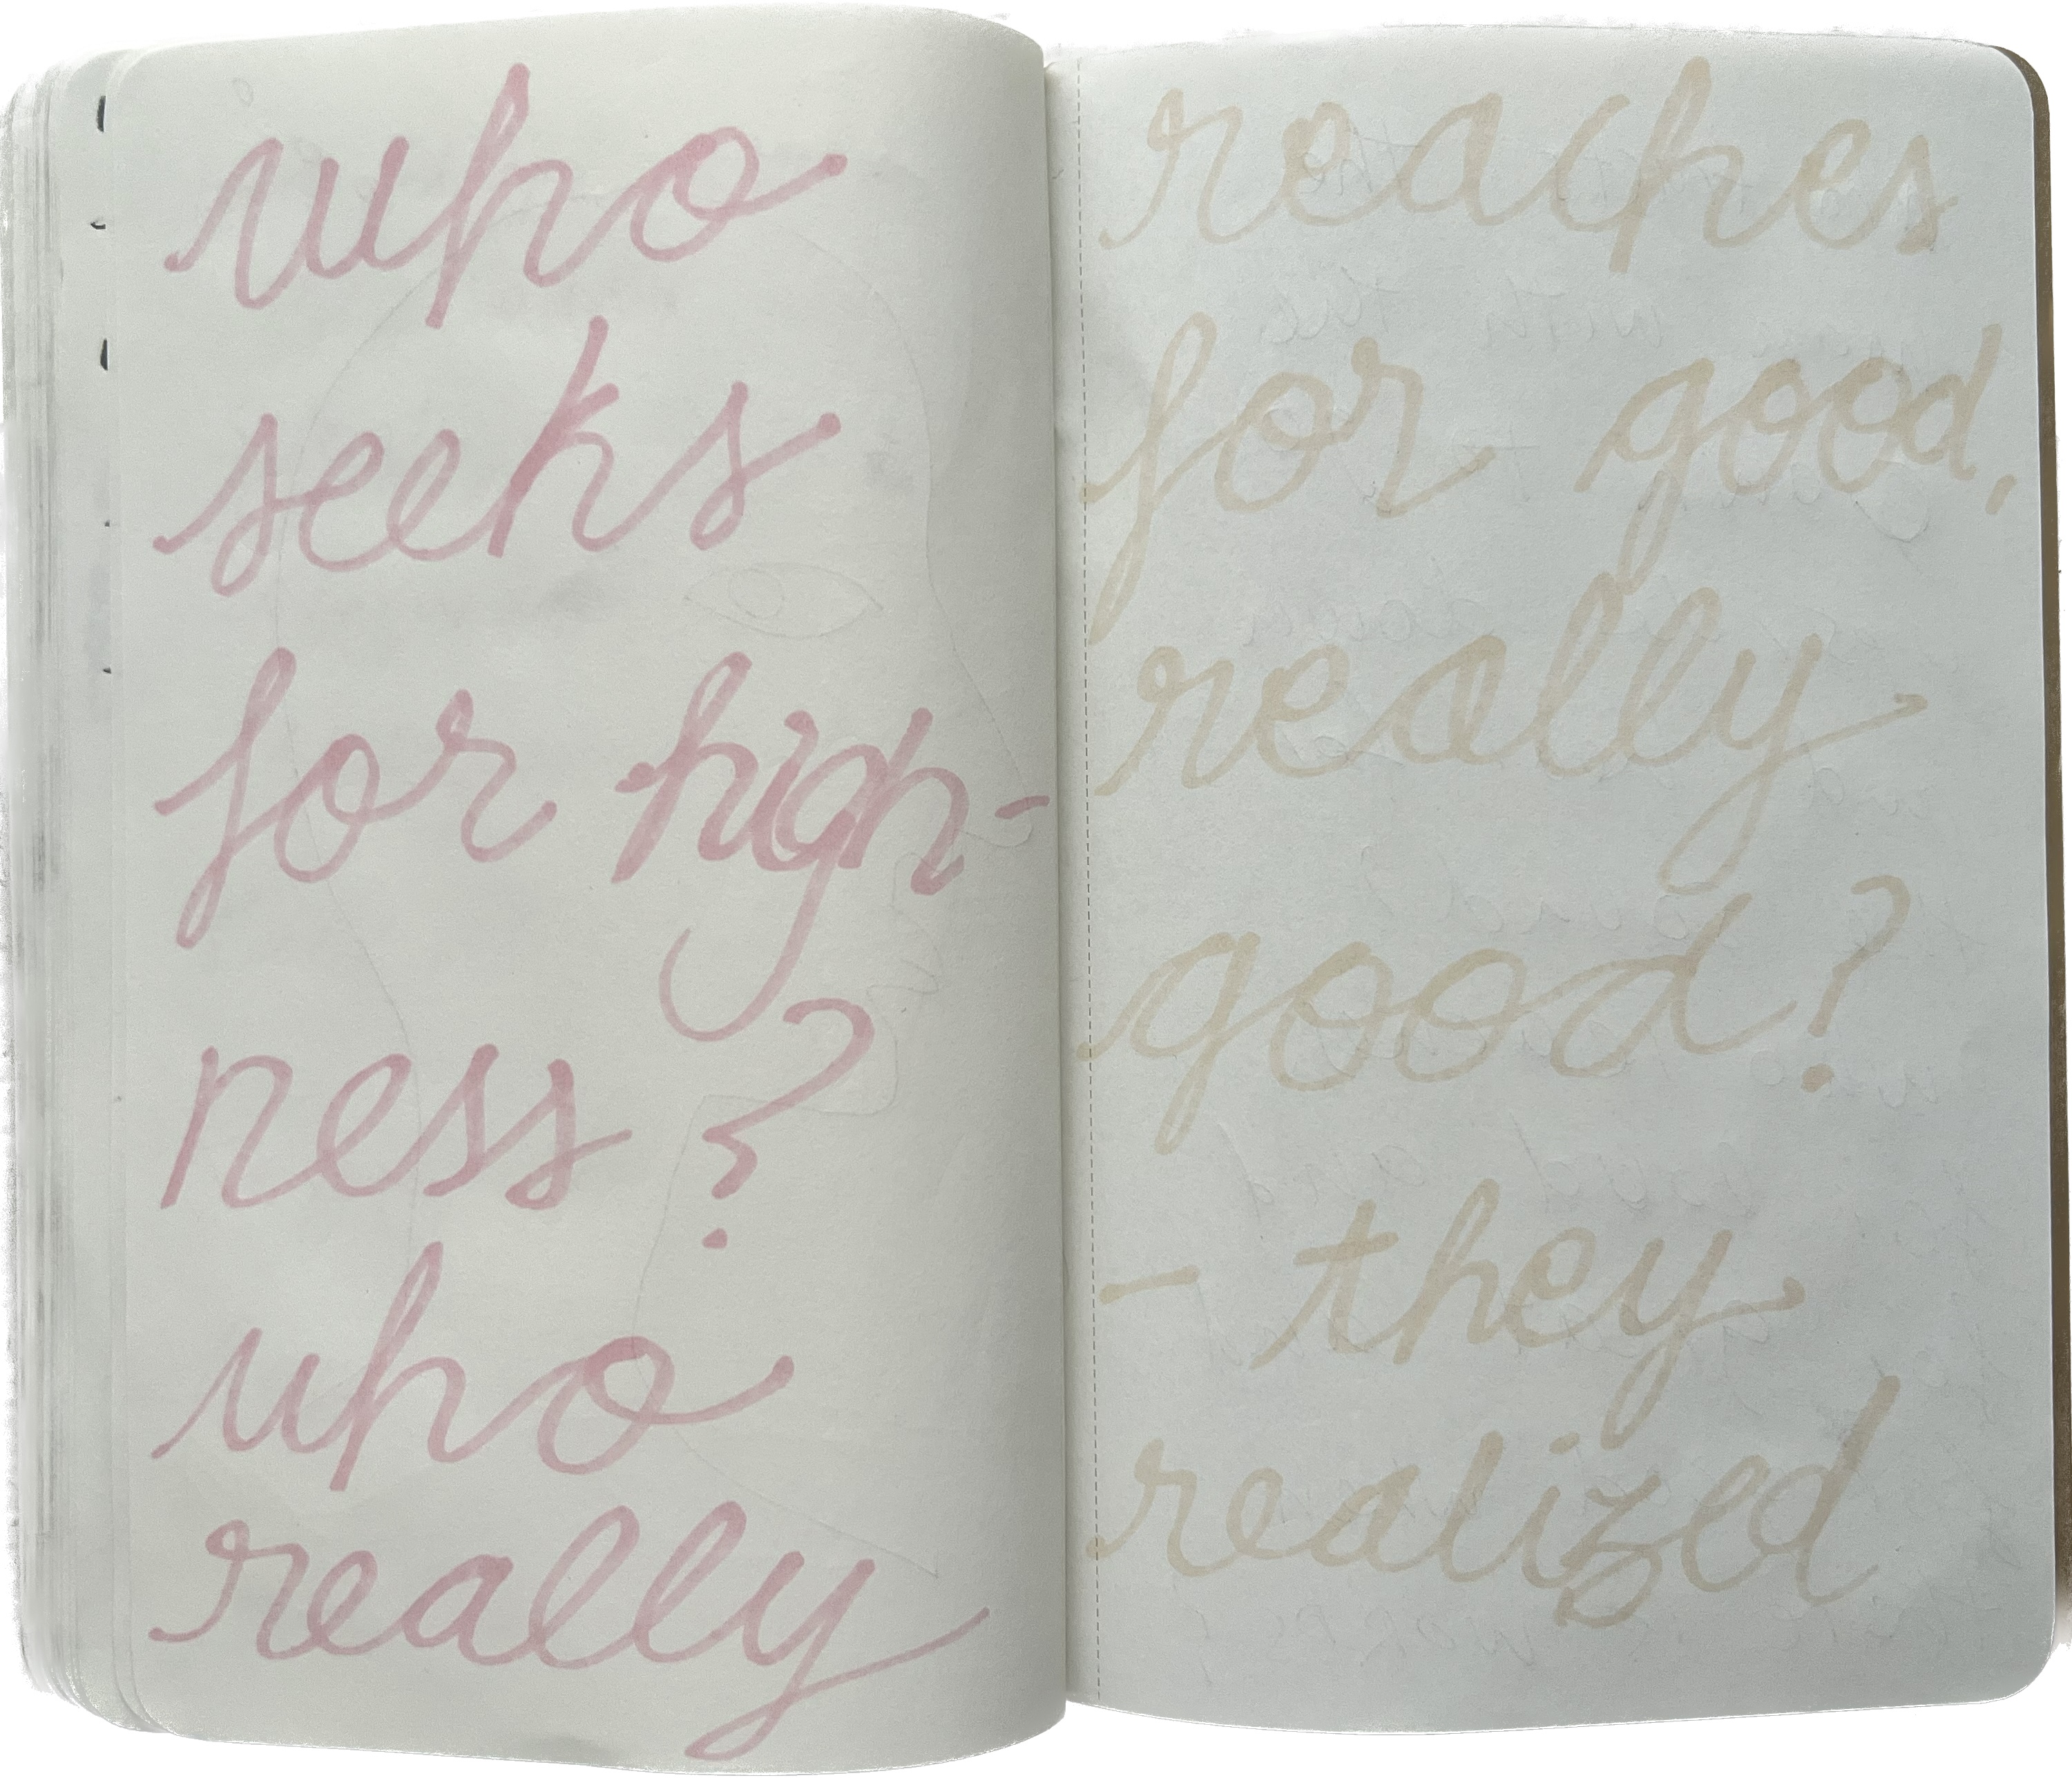 who
seeks
for high-
ness?
who
really
reaches
for good,
really
good?
- they
realized